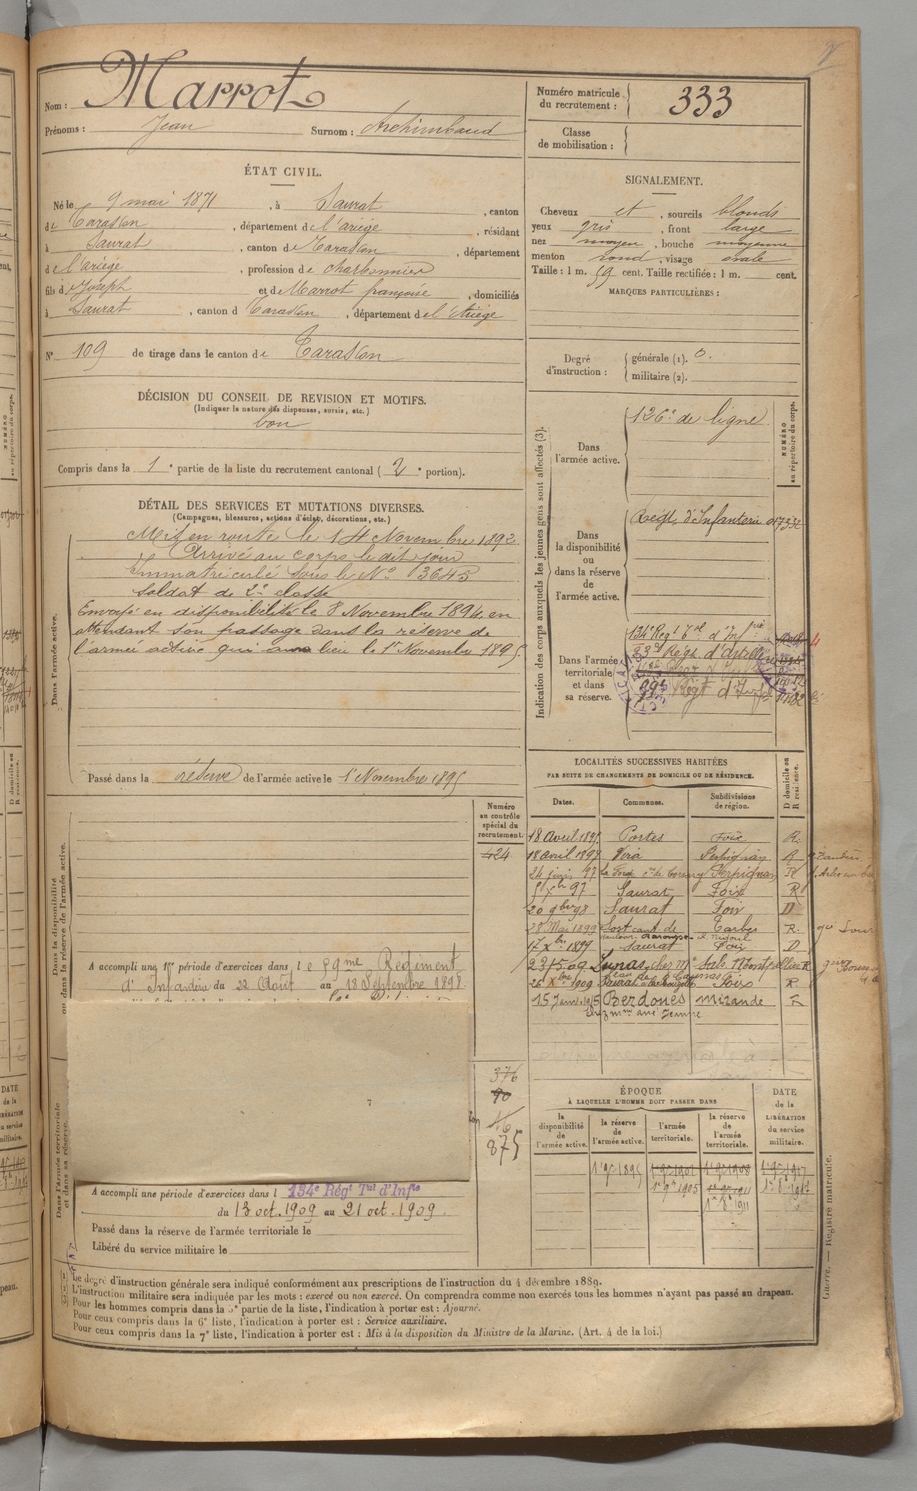 Nom : Marrot
Prénoms : Jean Surnom : Archimbaud
Numéro matricule du recrutement : 333
Classe de mobilisation :
ÉTAT CIVIL.
Né le 9 mai 1871, à Saurat, canton
de Tarascon, département de l'ariège, résidant
à Saurat, canton de Tarascon, département
de l'ariège, profession de charbonnier
fils de Joseph et de Marrot françoise, domiciliés
à Saurat, canton de Tarascon, département de l'Ariège
N° 109 de tirage dans le canton de Tarascon
SIGNALEMENT.
Cheveux et, sourcils blonds
yeux gris, front large
nez moyen, bouche moyenne
menton rond, visage ovale
Taille : 1 m. 59 cent. Taille rectifiée : 1 m. cent.
MARQUES PARTICULIÈRES :
Degré d'instruction : générale (1). 0.
militaire (2).
DÉCISION DU CONSEIL DE REVISION ET MOTIFS.
(Indiquer la nature des dispenses, sursis, etc.)
bon
Compris dans la 1e partie de la liste du recrutement cantonal (2e portion).
DÉTAIL DES SERVICES ET MUTATIONS DIVERSES.
(Campagnes, blessures, actions d'éclat, décorations, etc.)
Dans l'armée active.
Mis en route le 14 Novembre 1892
Arrivé au corps le dit jour
Immatriculé sous le N° 3645
Soldat de 2e classe
Envoyé en disponibilité le 8 Novembre 1894, en
attendant son passage dans la réserve de
l'armée active qui aura lieu le 1er Novembre 1895.
Passé dans la réserve de l'armée active le 1er Novembre 1895
Indication des corps auxquels les jeunes gens sont affectés (3).
NUMÉRO au répertoire du corps.
Dans l'armée active.
126e de ligne
Dans la disponibilité ou dans la réserve de l'armée active.
Régt d'Infanterie
Dans l'armée territoriale et dans sa réserve.
134e Régt Tal d'Infie
23e Régt d'artillerie
Régt d'Inf
LOCALITÉS SUCCESSIVES HABITÉES
PAR SUITE DE CHANGEMENTS DE DOMICILE OU DE RÉSIDENCE.
Dates. Communes. Subdivisions de région. D domicile ou R résidence.
18 Avril 1895 Portes Foix R.
18 avril 1897 Vira Perpignan R
24 juin 97 Perpignan R
5 Xbre 97 Saurat Foix R
20 9bre 98 Saurat Foix D
28 Mai 1899 Sost cant de Tarbes R.
17 Xbre 1899 Saurat Foix D
23/5 09 Lunas, chez Mr
26 Xbre 1909 Saurat Foix R
15 Janv. 1915 Berdoues Mirande R
Numéro au contrôle spécial du recrutement.
424
Dans la disponibilité ou dans la réserve de l'armée active.
A accompli une 1re période d'exercices dans le 59me Régiment
d'Infanterie du 22 Août au 18 Septembre 1898.
376
90
875
Dans l'armée territoriale et dans sa réserve.
A accompli une période d'exercices dans l 134e Régt Tal d'Infie
du 13 oct. 1909 au 21 oct. 1909.
Passé dans la réserve de l'armée territoriale le
Libéré du service militaire le
ÉPOQUE
À LAQUELLE L'HOMME DOIT PASSER DANS
la disponibilité de l'armée active. la réserve de l'armée active. l'armée territoriale. la réserve de l'armée territoriale. DATE de la LIBÉRATION du service militaire.
1er 9bre 1895
1er 9bre 1905
Guerre. — Registre matricule.
(1) Le degré d'instruction générale sera indiqué conformément aux prescriptions de l'instruction du 4 décembre 1889.
(2) L'instruction militaire sera indiquée par les mots : exercé ou non exercé. On comprendra comme non exercés tous les hommes n'ayant pas passé au drapeau.
(3) Pour les hommes compris dans la 5e partie de la liste, l'indication à porter est : Ajourné.
Pour ceux compris dans la 6e liste, l'indication à porter est : Service auxiliaire.
Pour ceux compris dans la 7e liste, l'indication à porter est : Mis à la disposition du Ministre de la Marine. (Art. 4 de la loi.)